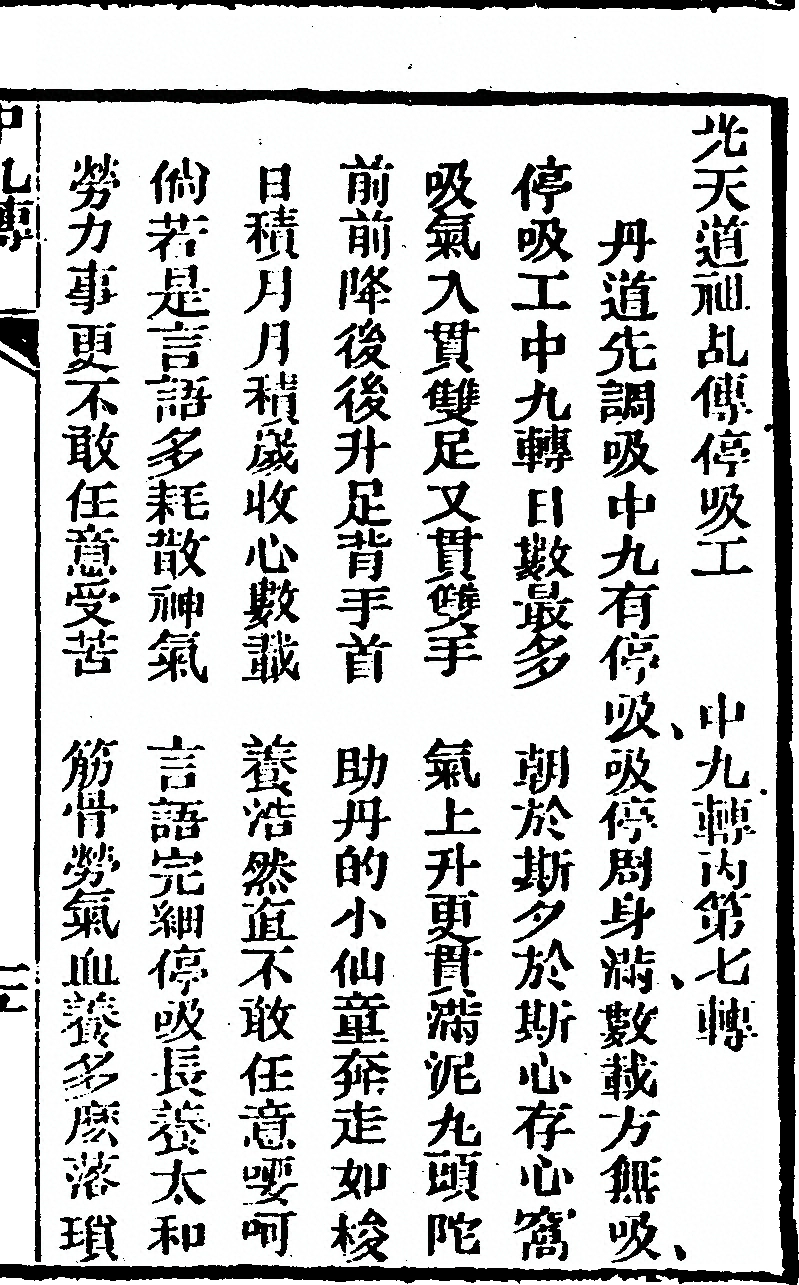 先天道祖乩傳停吸工　中九轉內第七轉
丹道先調吸中九有停吸、吸停周身滿、數載方無吸、
停吸工中九轉日數最多　朝於斯夕於斯心存心窩
吸氣入貫雙足又貫雙手　氣上升更貫滿泥九頭陀
前前降後後升足背手首　助丹的小仙童奔走如梭
日積月月積歲收心數載　養浩然直不敢任意嘤呵
倘若是言語多耗散神氣　言語完細停吸長養太和
勞力事更不敢任意受苦　筋骨勞氣血養多麽落瑣
中九傳　二十一